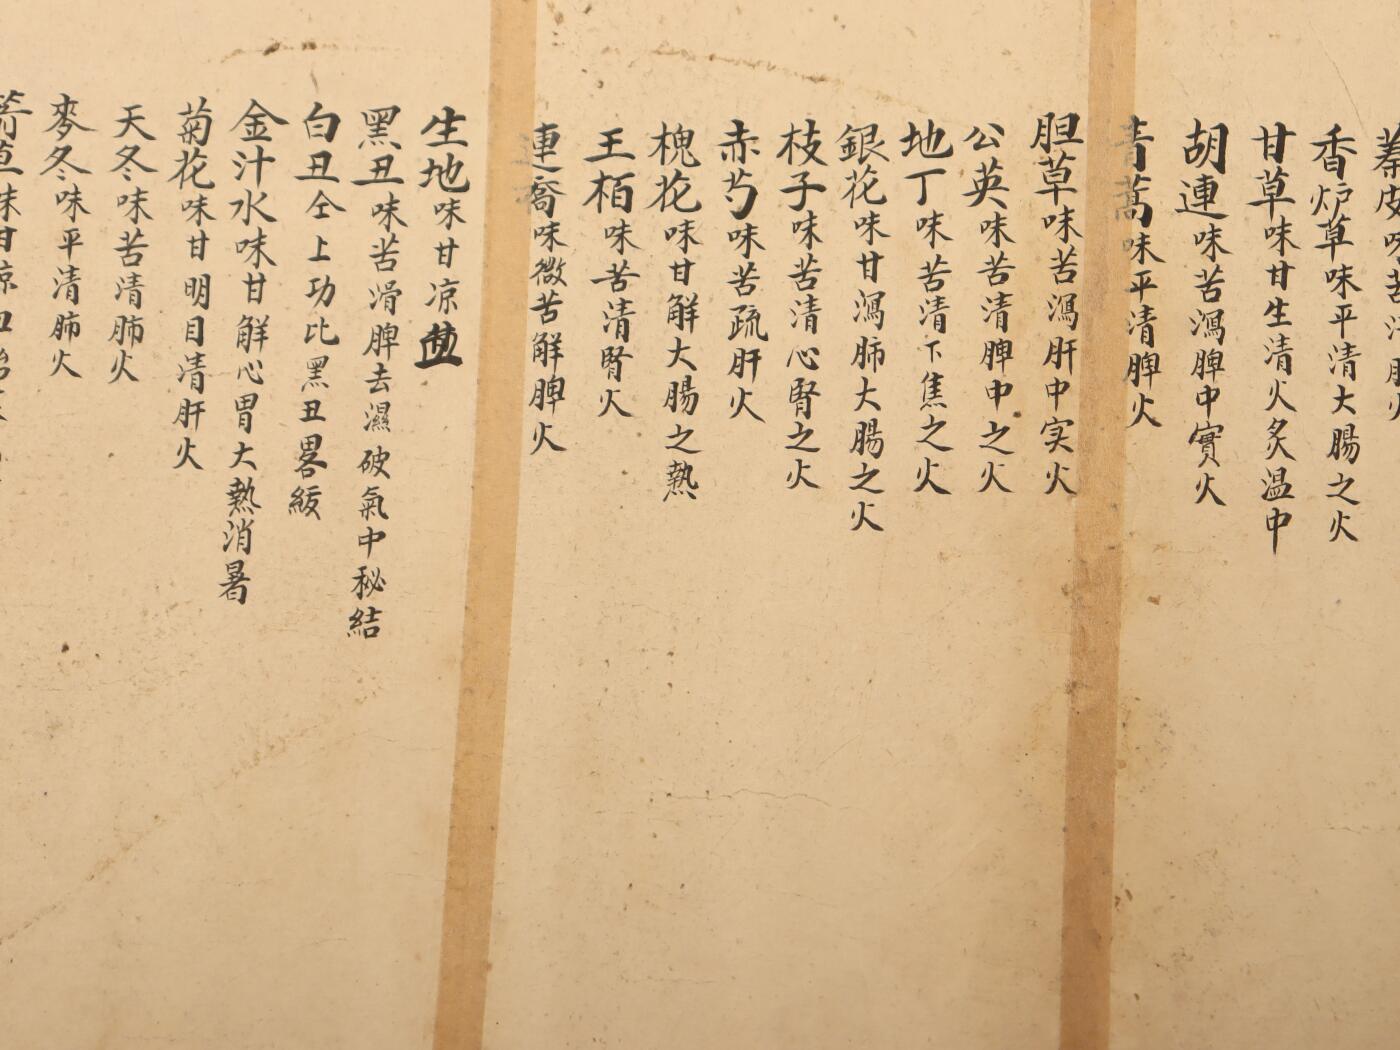 香炉草味平清大腸之火
甘草味甘生清火炙温中
胡連味苦瀉脾中實火
青蒿味平清脾火
胆草味苦瀉肝中实火
公英味苦清脾中之火
地丁味苦清下焦之火
銀花味甘瀉肺大腸之火
枝子味苦清心腎之火
赤芍味苦疏肝火
槐花味甘解大腸之熱
王栢味苦清腎火
連喬味微苦解脾火
生地味甘凉血
黑丑味苦滑脾去濕破氣中秘結
白丑仝上功比黑丑畧緩
金汁水味甘解心胃大熱消暑
菊花味甘明目清肝火
天冬味苦清肺火
麥冬味平清肺火